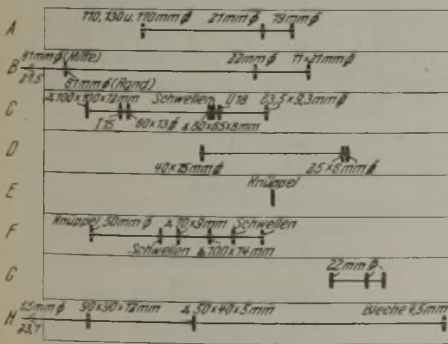 A 110, 130 u. 170mm ϕ 21mm ϕ 19mm ϕ
B 81mm ϕ (Mitte) 22mm ϕ 11×21mm ϕ
27,5 61mm ϕ (Rand)
C ⦟100×100×12mm Schwellen U18 63,5×9,3mm ϕ
I15 60×13 ϕ ⦟80×65×8mm
D
40×15mm ϕ 25×8mm ϕ
E Knüppel
F Knüppel 50mm ϕ ⦟70×9mm Schwellen
Schwellen ⦟100×14mm
G 22mm ϕ
H 65mm ϕ 90×90×12mm ⦟50×40×5mm Bleche 4,5mm
23,7